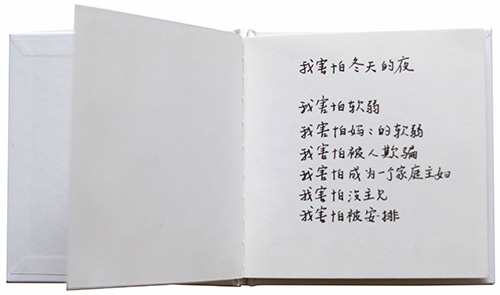 我害怕冬天的夜
我害怕软弱
我害怕妈：的软弱
我害怕被人欺骗
我害怕成为一个家庭主妇
我害怕没主见
我害怕被安排